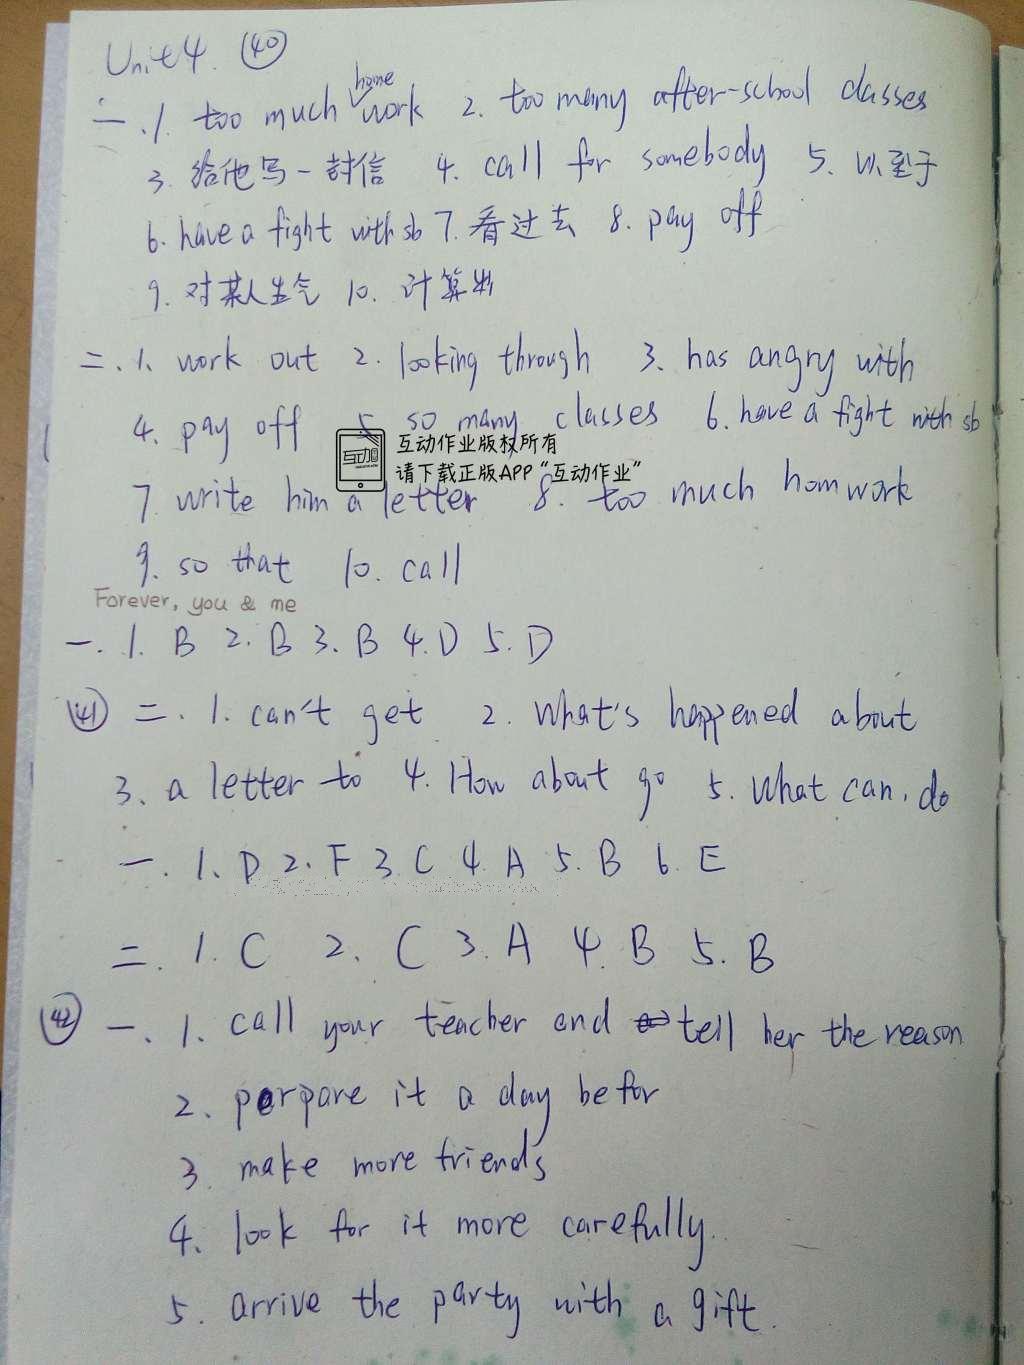 Unit4. ㊵
一.1. too much homework 2. too many after-school classes
3. 给他写一封信 4. call for somebody 5. 以至于
6. have a fight with sb 7. 看过去 8. pay off
9. 对某人生气 10. 计算出
二.1. work out 2. looking through 3. has angry with
4. pay off 5 so many classes 6. have a fight with sb
互动 互动作业版权所有
请下载正版APP“互动作业”
7. write him a letter 8. too much homwork
9. so that 10. call
Forever, you & me
一. 1. B 2. B 3. B 4. D 5. D
㊶ 二. 1. can't get 2. What's happened about
3. a letter to 4. How about go 5. What can, do
一. 1. D 2. F 3. C 4. A 5. B 6. E
二. 1. C 2. C 3. A 4. B 5. B
㊷ 一. 1. call your teacher and tell her the reason
2. perpare it a day befor
3. make more friends
4. look for it more carefully.
5. arrive the party with a gift.